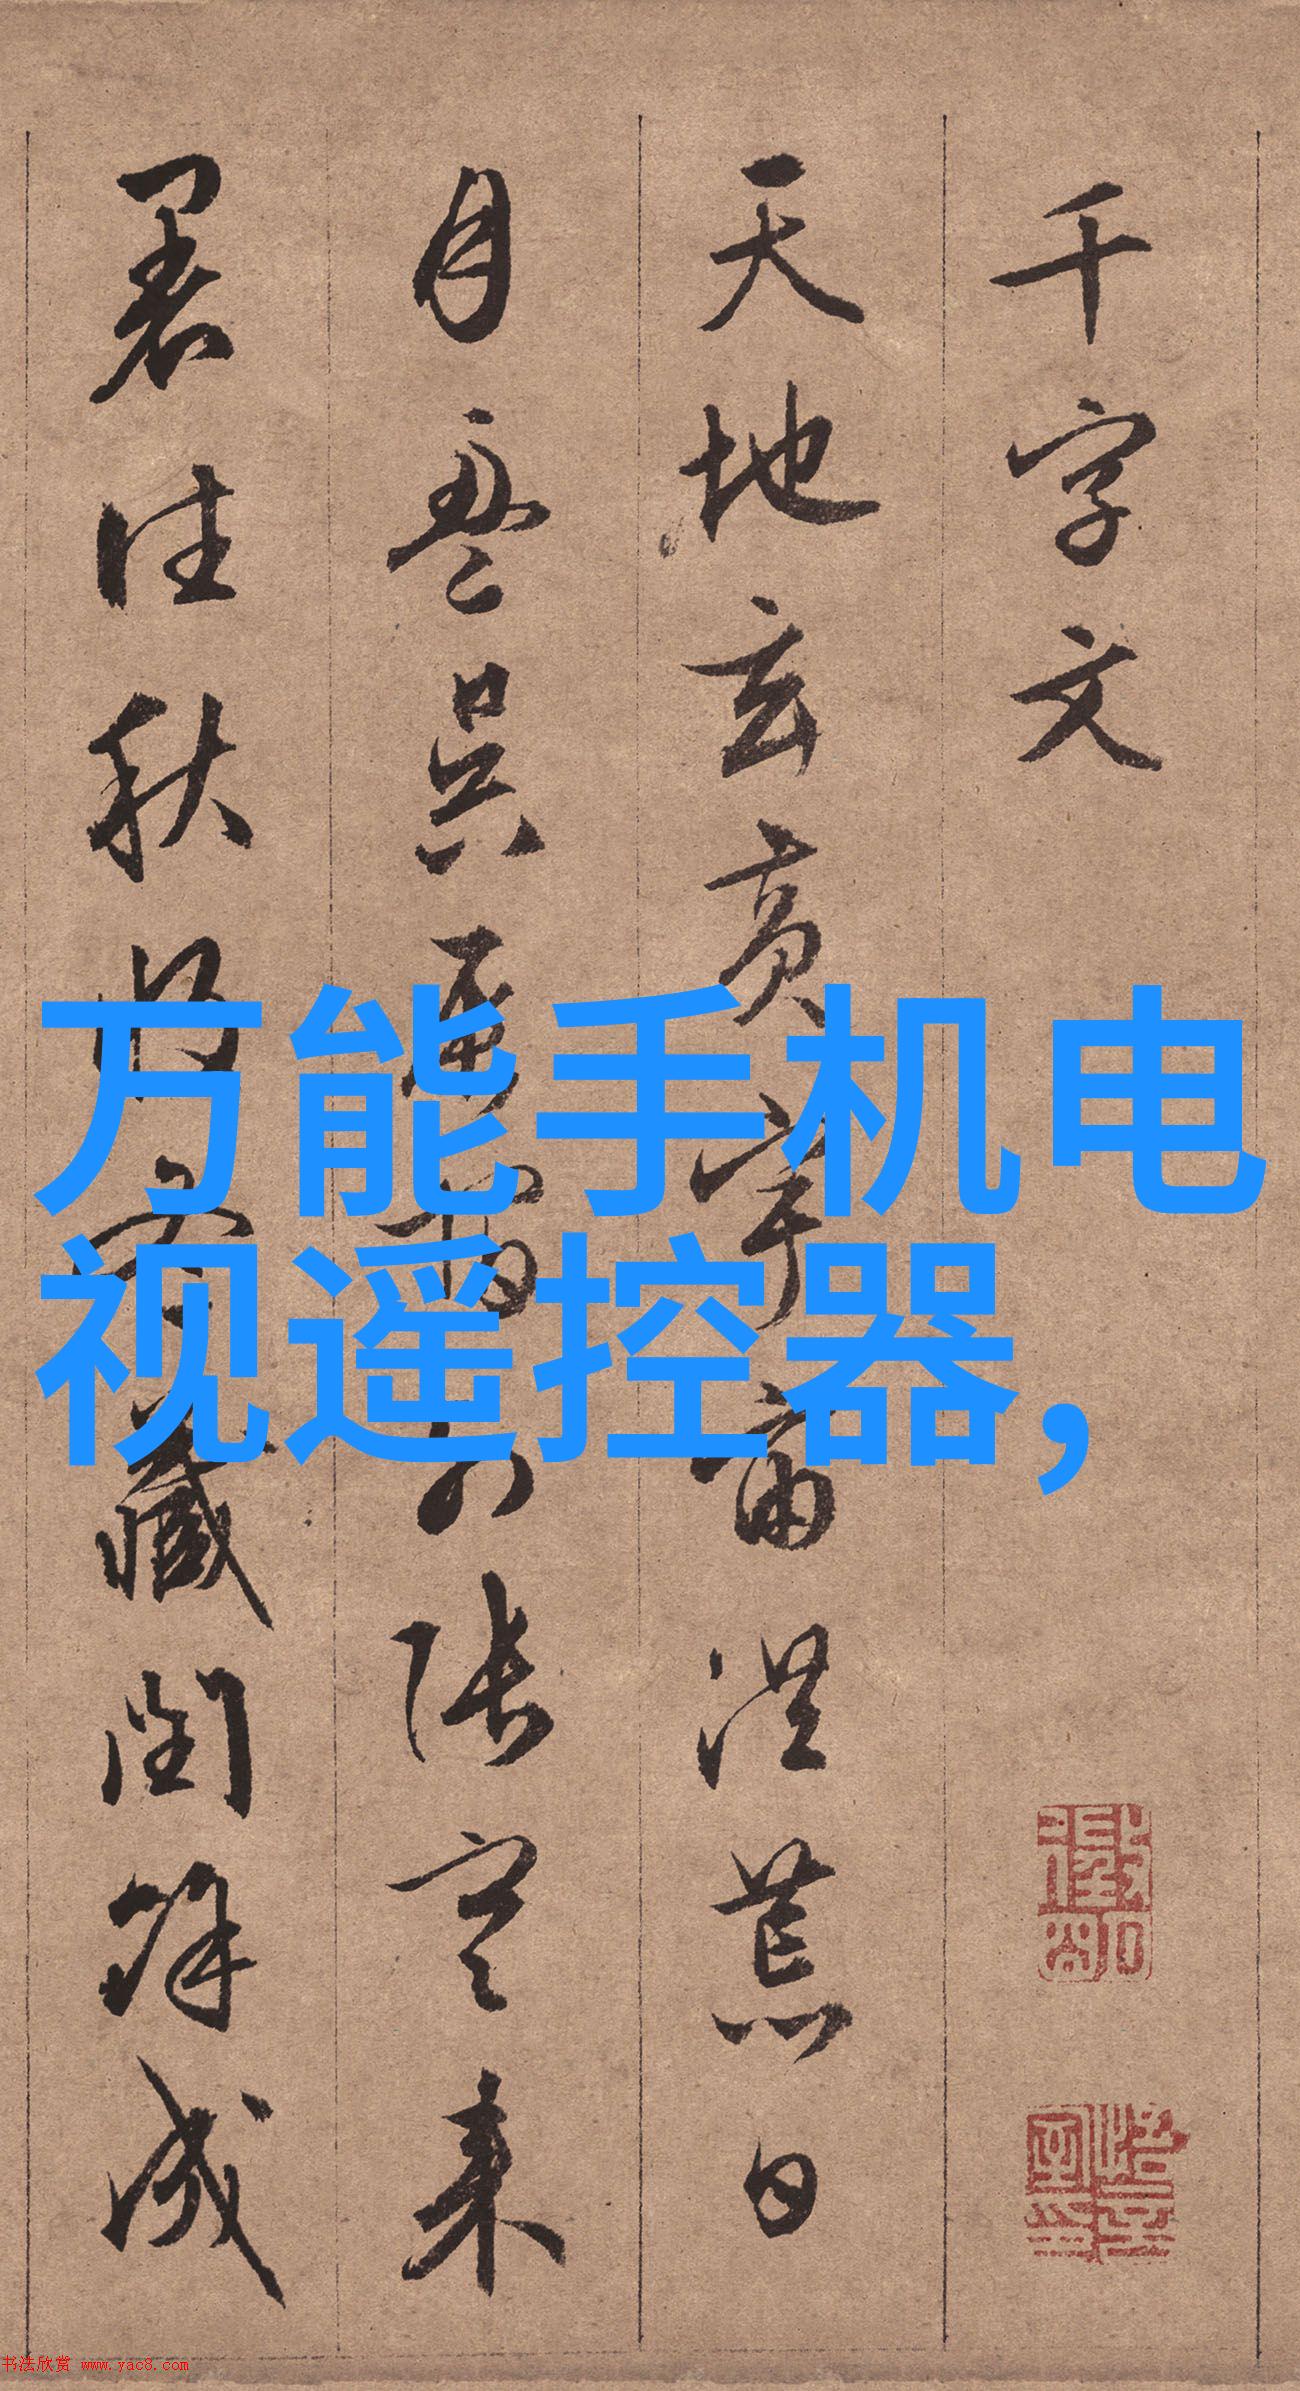 千字文
天地玄黄宇宙洪荒日
月盈昃辰宿列张寒来
暑往秋收冬藏闰余成
万能手机电
视遥控器，
书法欣赏 www.yac8.com